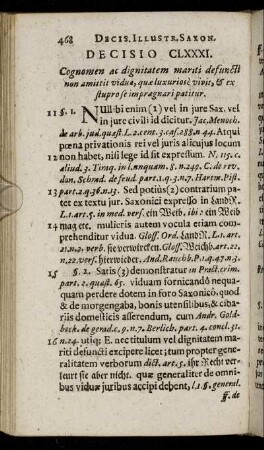 468 DECIS. ILLUSTR. SAXON.
DECISIO CLXXXI.
Cognomen ac dignitatem mariti defuncti
non amittit vidua, quæ luxuriosè vivit, & ex
stupro se imprægnari patitur.
11 §. 1. NUllibi enim (1) vel in jure Sax. vel
in jure civili id dicitur. Jac. Menoch.
de arb. jud. quæst. L. 2. cent. 3. cas. 288. n. 44. Atqui
pœna privationis rei vel juris alicujus locum
12 non habet, nisi lege id sit expressum. N. 115. c.
aliud. 3. Tiraq. in l. nnquam. 8. n. 246. C. de revo
dun. Schrad. de feud. part. 14. 3. n. 7. Hartm. Pist.
13 part. 2. q. 36. n. 13. Sed potiùs (2) contrarium pa-
tet ex textu jur. Saxonici expresso in LandR.
L. 1. art. 5. in med. vers. ein Weib, ibi 2 ein Weib
14 mag etc. mulieris autem vocula etiam com-
prehenditur vidua. Gloss. Ord. LandR. L. 1. art.
21. n. 2. verb. sie verwircket. Gloss. Weichb. art. 22.
n. 22. vers. hierwider. And. Rauchb. P. 1. q. 47. n. 3.
15 §. 2. Satis (3) demonstratur in Pract. crim.
pars 2. quæst. 65. viduam fornicando nequa-
quam perdere dotem in foro Saxonico, quod
& de morgengaba, bonis utensilibus, & ciba-
riis domesticis asserendum, cum Andr. Gold-
beck. de gerad. c. 9. n. 7. Berlich. part. 4. concl. 31.
16 n. 24. utiq; E. nec titulum vel dignitatem ma-
riti defuncti excipere licet; tum propter gene-
ralitatem verborum dict. art. 5. ihr Recht ver-
leuret sie aber nicht. quæ generaliter de omni-
bus viduæ juribus accipi debent, l. 1. §. general.
ff. de